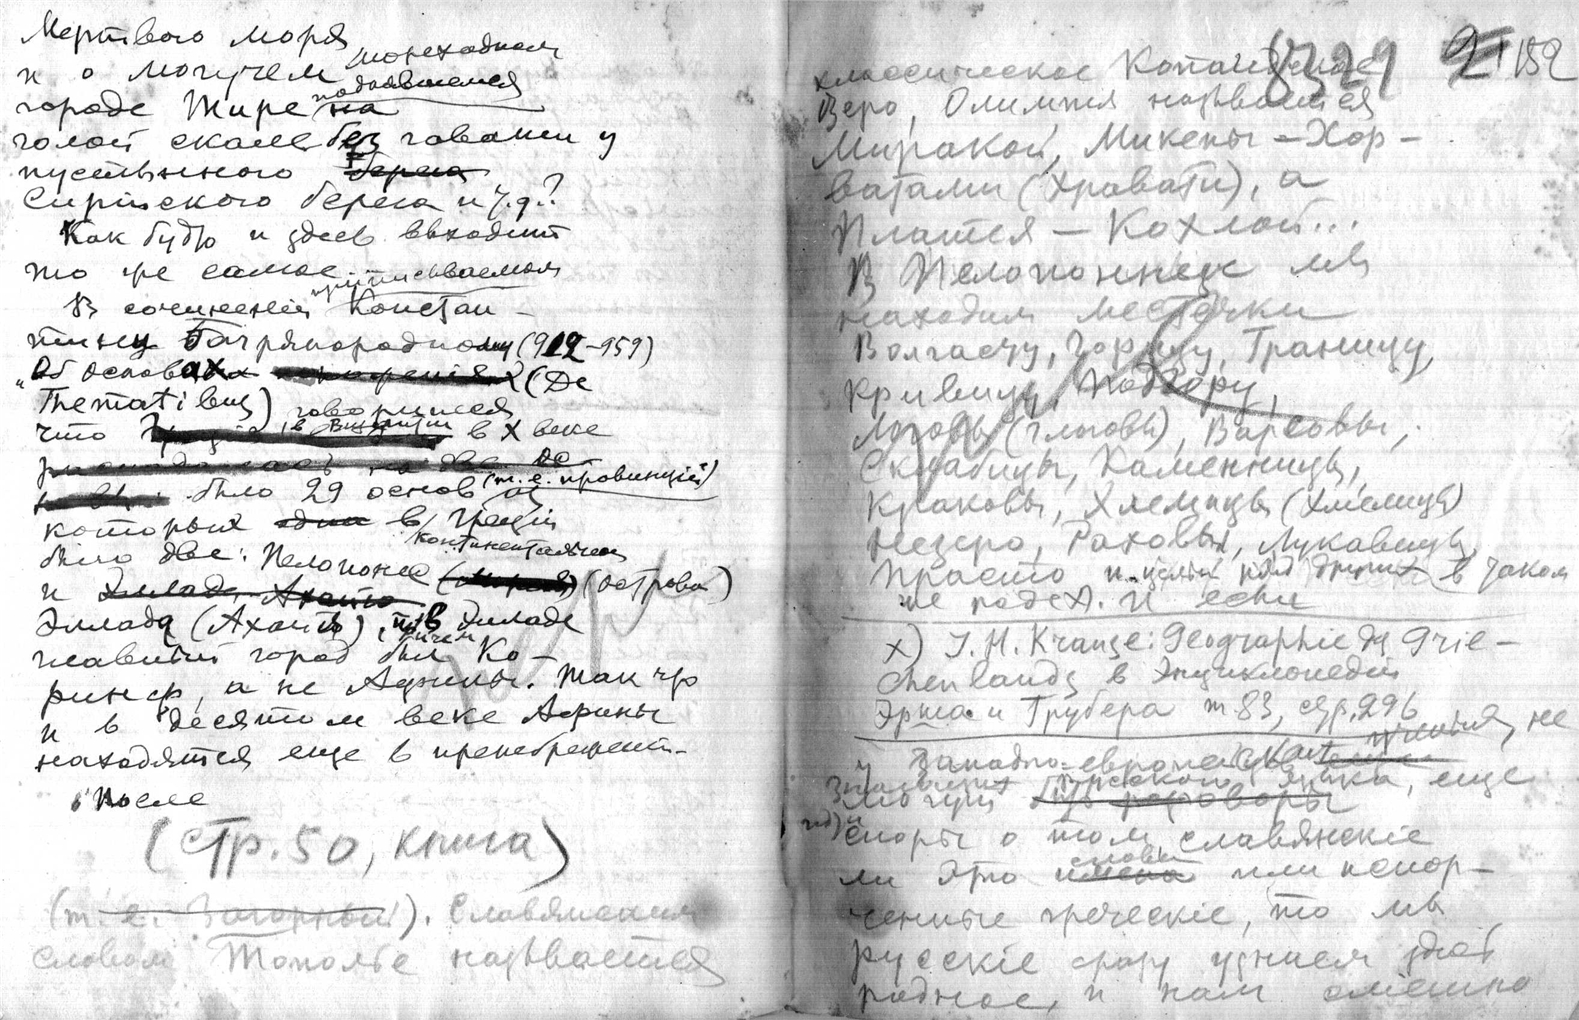 Мертвого моря
и о могучем мореходном
городе Тире подавшемся на
голой скале без гавани у
пустынного берега
Сирійского берега и т.д.?
Как будто и здесь выходит
то же самое.
В сочинении приписываемом Констан-
тину Багрянородному (912-959)
„Об основах (De
Thematibus) говорится
что в Византии в X веке
было 29 основ (т.е. провинцій) из
которых в Греціи
было две: Пелопонес (острова)
и континентальная
Эллада (Ахаія), причем в Элладе
главный город был Ко-
ринф, а не Афины. Так что
и в десятом веке Афины
находятся еще в пренебрежені-
После
(стр. 50, книга)
(т. е. Загорный). Славянским
словом Тополье называется
8329 152
классическое
Веро, Олимпия называется
Миракой, Микены – Хор-
ватами (Хравати), а
Платея – Кохлой...
В Пелопоннезе мы
находим местечки
Волгасту, Горицу, Границу,
Кривицу, Подгору,
Логовы (Глоговы), Варсовы,
Склабицы, Каменницы,
Краковы, Хлемицы (Хмелицы)
Незеро, Раховы, Лукавицы,
просто и целый ряд других в таком
же роде х). И если
х) J. H. Krause: Geographie des Grie-
chenlands в Энциклопедіи
Эрша и Грубера т. 83, стр. 296
Западно-европейскіе ученые, не
знающіе русского языка, еще
могут
споры о том, славянскіе
ли это слова или испор-
ченные греческіе, то мы
русскіе сразу узнаем здесь
родное, и нам смешно